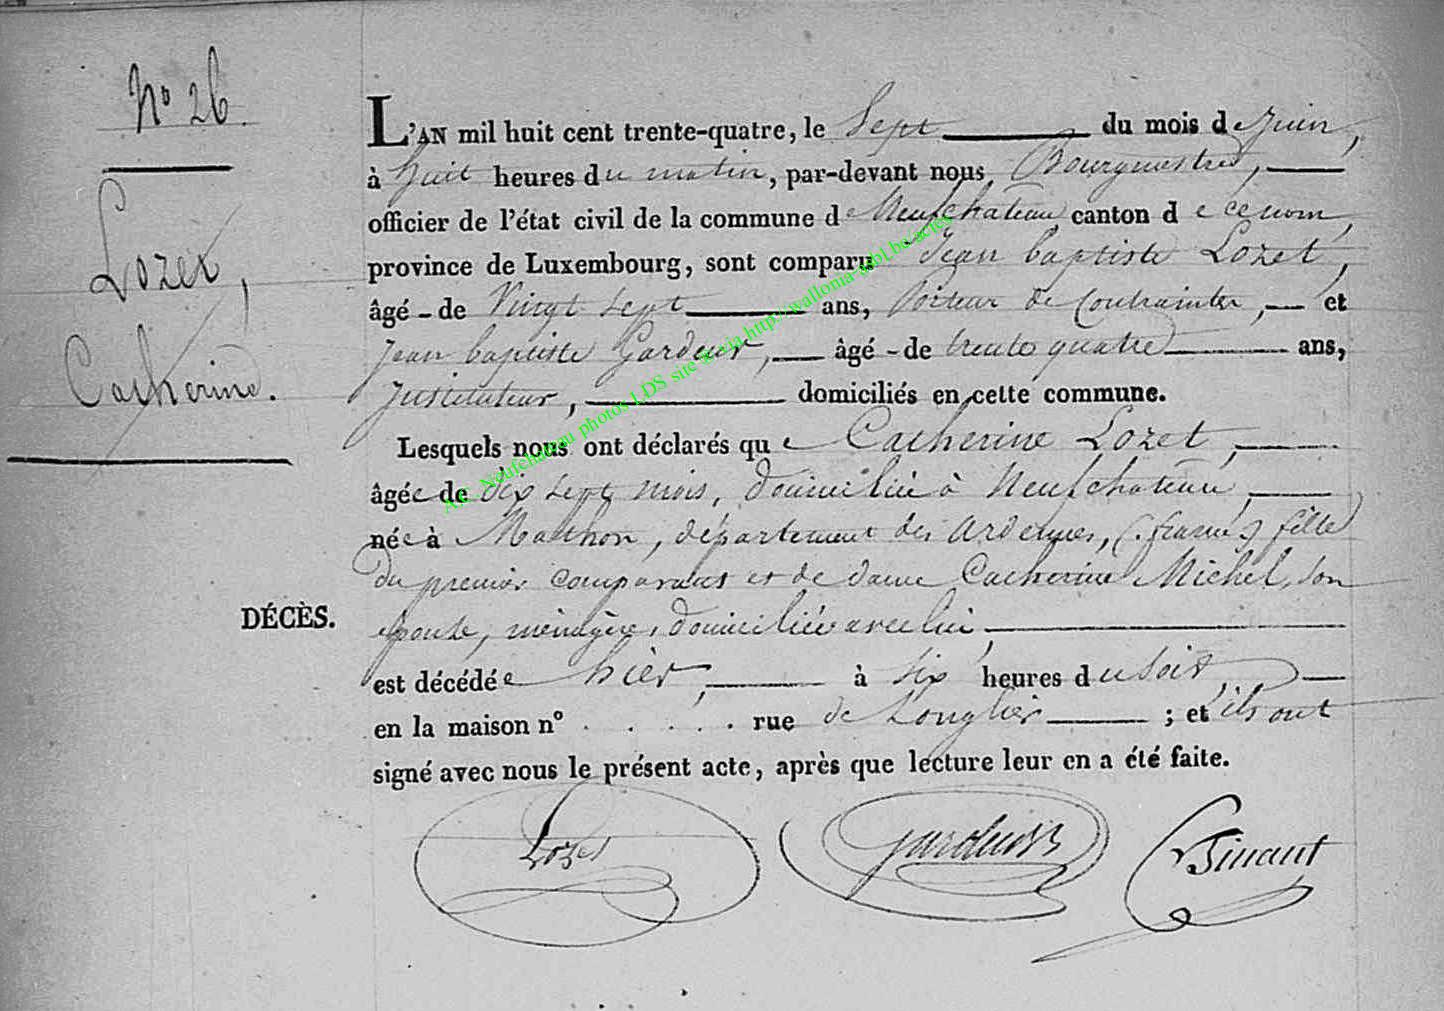 N° 26.
Lozet,
Catherine.
DÉCÈS.
L'AN mil huit cent trente-quatre, le Sept du mois de Juin,
à huit heures du matin, par-devant nous Bourgmestre,
officier de l'état civil de la commune de Neufchateau canton de ce nom,
province de Luxembourg, sont comparu Jean baptiste Lozet,
âgé - de Vingt sept ans, Porteur de Contraintes, et
Jean baptiste Gardeur, âgé - de trente quatre ans,
Instituteur, domiciliés en cette commune.
Lesquels nous ont déclarés que Catherine Lozet,
âgée de dix sept mois, domiciliée à Neufchateau,
née à Mathon, département des Ardennes, (france) fille
du premier comparant et de dame Catherine Michel, son
epouse, ménagère, domiciliée avec lui,
est décédée hier, à six heures du soir,
en la maison n° . . . . . rue de Longlier ; et ils ont
signé avec nous le présent acte, après que lecture leur en a été faite.
Lozet
AE Neufchateau photos LDS site via http://wallonia-asbl.be/actes